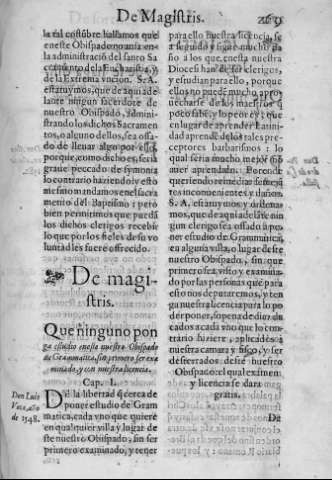 De Magistris.
la tal costũbre hallamos que
en este Obispado no auia en-
la administraciõ del sancto Sa
cramento de la Eucharistia, y
de la Extrema vncion. S. A.
estatuymos, que de aqui ade
lante ningun sacerdote de
nuestro Obispado, admini-
strando los dichos Sacramen
tos, o alguno dellos, sea ossa-
do de lleuar algo por ello,
porque, como dicho es, seria
graue peccado de symonia
lo contrario haziendo: y esto
mesmo mandamos en el sacra
mento del Baptismo: pero
bien permitimos que pueda
los dichos clerigos recebir
lo que por los fieles de su vo
luntad les fuere offrecido.
De magi-
stris.
Que ninguno pon
ga estudio en este nuestro Obispado
de Grammatica, sin primero ser exa
minado, y con nuestra licencia.
Cap. I.
Don Luis
Vaca, año
de 1548.
De la libertad q̃ cerca de
poner estudio de Gram
matica, cada vno que quiere
en qualquier villa y lugar de
ste nuestro Obispado, sin ser
primero examinado, y tener
para ello nuestra licencia, se
a seguido y sigue mucho da
ño a los que, en esta nuestra
Diocesi han de ser clerigos,
y estudian para ello, porque
ellos no puedẽ mucho apro
uecharse de los maestros q̃
poco sabẽ, y lo peor es, que
en lugar de aprender latini
dad aprenden de los tales pre
ceptores barbarismos: lo
qual seria mucho mejor no
auer aprendido. Porende
queriendo remediar semejã
tes inconuenientes y daños.
S. A. estatuymos, y ordena
mos, que de aqui adelãte nin
gun clerigo sea ossado a po
ner estudio de Grammatica,
en alguna villa, o lugar deste
nuestro Obispado, sin que
primero sea visto y examina
do por las personas que para
ello nos deputaremos, y ten
ga nuestra licencia para lo po
der poner, so pena de diez du
cados a cada vno que lo con
trario hiziere, aplicados a
nuestra camara y fisco, y ser
desterrados deste nuestro
Obispado: el qual examen
y licencia se dara
gratis.
De